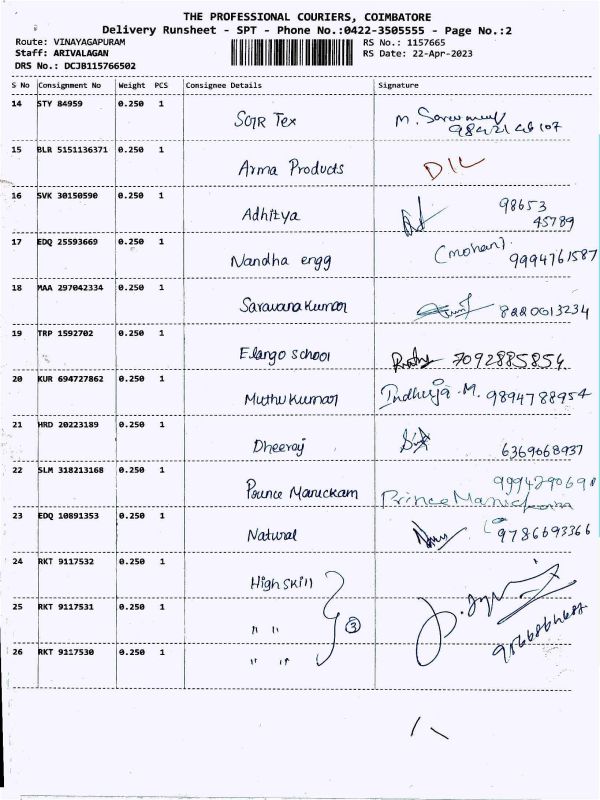 THE PROFESSIONAL COURIERS, COIMBATORE
Delivery Runsheet - SPT - Phone No.:0422-3505555 - Page No.:2
Route: VINAYAGAPURAM RS No.: 1157665
Staff: ARIVALAGAN RS Date: 22-Apr-2023
DRS No.: DCJB115766502
S No Consignment No Weight PCS Consignee Details Signature
14 STY 84959 0.250 1
SGR Tex M. 
15 BLR 5151136371 0.250 1
Arma Products
16 SVK 30150590 0.250 1
Adhitya 98653
45789
17 EDQ 25593669 0.250 1
Nandha engg (mohan). 9994761587
18 MAA 297042334 0.250 1
Saravana Kumar 8220013234
19 TRP 1592702 0.250 1
Elango school 7092885854
20 KUR 694727862 0.250 1
Muthu Kumar Indhuja.M. 9894788954
21 HRD 20223189 0.250 1
Dheeraj 6369068937
22 SLM 318213168 0.250 1
Prince Manickam Prince Manickam
23 EDQ 10891353 0.250 1
Natural 9786693366
24 RKT 9117532 0.250 1
High skill
25 RKT 9117531 0.250 1
" " 3
26 RKT 9117530 0.250 1
" "